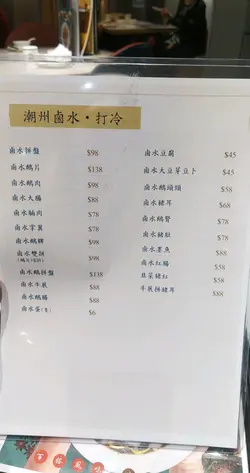 潮州鹵水·打冷
鹵水拼盤 $98
鹵水鵝片 $138
鹵水鵝肉 $98
鹵水大腸 $88
鹵水腩肉 $78
鹵水掌翼 $78
鹵水鵝髀 $98
鹵水雙拼 $98
鹵水鵝拼盤 $138
鹵水牛展 $88
鹵水鵝腸 $88
鹵水蛋(隻) $6
鹵水豆腐 $45
鹵水大豆芽豆卜 $45
鹵水鵝頭頸 $58
鹵水豬耳 $68
鹵水鵝腎 $78
鹵水豬肚 $78
鹵水墨魚 $88
鹵水紅腸 $58
韭菜豬紅 $58
牛展拼豬耳 $88